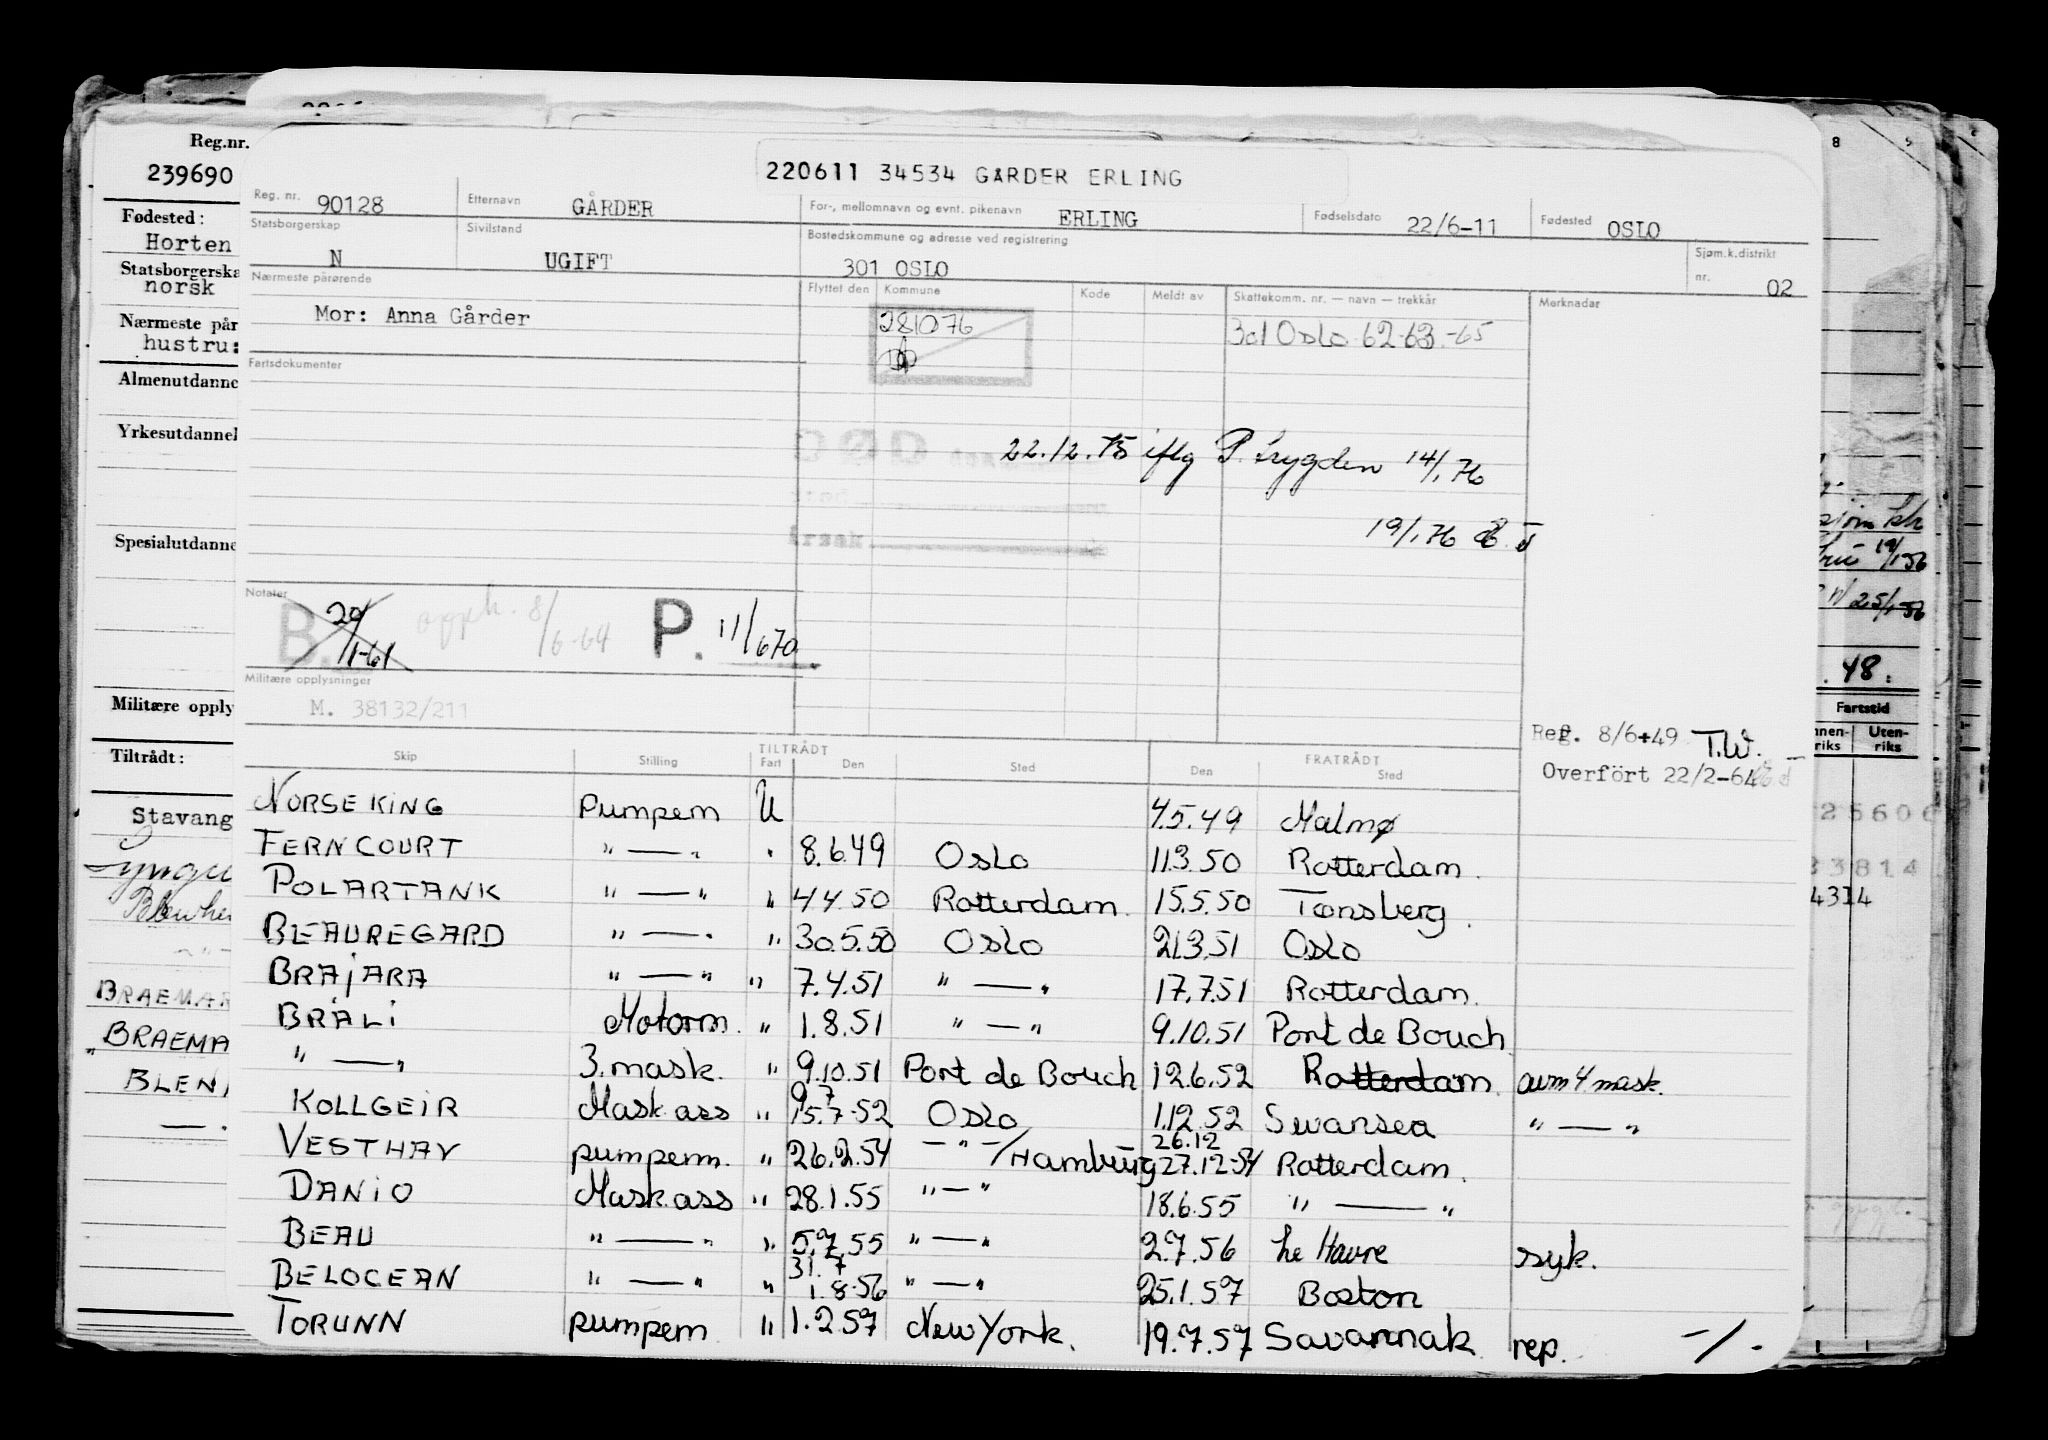 220611 34534 GÅRDER ERLING
Reg. nr. 90128 Etternavn GÅRDER For-, mellomnavn og evnt. pikenavn ERLING Fødselsdato 22/6-11 Fødested OSLO
Statsborgerskap N Sivilstand UGIFT Bostedskommune og adresse ved registrering 301 OSLO Sjøm.k.distrikt nr. 02
Nærmeste pårørende Flyttet den Kommune Kode Meldt av Skattekomm. nr. — navn — trekkår Merknader
Mor: Anna Gårder 281076 301 Oslo 62-63-65
Fartsdokumenter
DØD 22.12.75 iflg P. trygden 14/1.76
sted
årsak 19/1.76
Notater
B. 20/1-61 opph. 8/6-64 P. 11/670
Militære opplysninger
M. 38132/211
Reg. 8/6-49 T.W.
Overført 22/2-61
Skip Stilling TILTRÅDT Fart Den Sted FRATRÅDT Den Sted
NORSE KING Pumpem U 4.5.49 Malmø
FERNCOURT " — " " 8.6.49 Oslo 11.3.50 Rotterdam.
POLARTANK " — " " 4.4.50 Rotterdam. 15.5.50 Tønsberg.
BEAUREGARD " — " " 30.5.50 Oslo 21.3.51 Oslo
BRAJARA " — " " 7.4.51 " — " 17.7.51 Rotterdam.
BRALI Motorm. " 1.8.51 " — " 9.10.51 Port de Bouch
" — " 3.mask. " 9.10.51 Port de Bouch 12.6.52 Rotterdam. avm 4 mask.
KOLLGEIR Mask.ass " 9.7 15.7.52 Oslo 1.12.52 Swansea " — "
VESTHAV pumpem. " 26.2.54 — " — /Hamburg 26.12 27.12.54 Rotterdam.
DANIO Mask.ass " 28.1.55 " — " 18.6.55 " — "
BEAU " — " " 5.7.55 " — " 2.7.56 Le Havre syk.
BELOCEAN " — " " 31.7 1.8.56 " — " 25.1.57 Boston
TORUNN pumpem " 1.2.57 New York. 19.7.57 Savannak rep. -/-
Reg.nr.
239690
Fødested:
Horten
Statsborgerska
norsk
Nærmeste pår
hustru:
Almenutdanne
Yrkesutdannel
Spesialutdanne
Militære opply
Tiltrådt:
Stavang
BRAEMAR
BRAEMA
BLEN
8
19/1 56
25/1-56
.48.
Fartstid
nnen-riks Uten-riks
25606
33814
4314